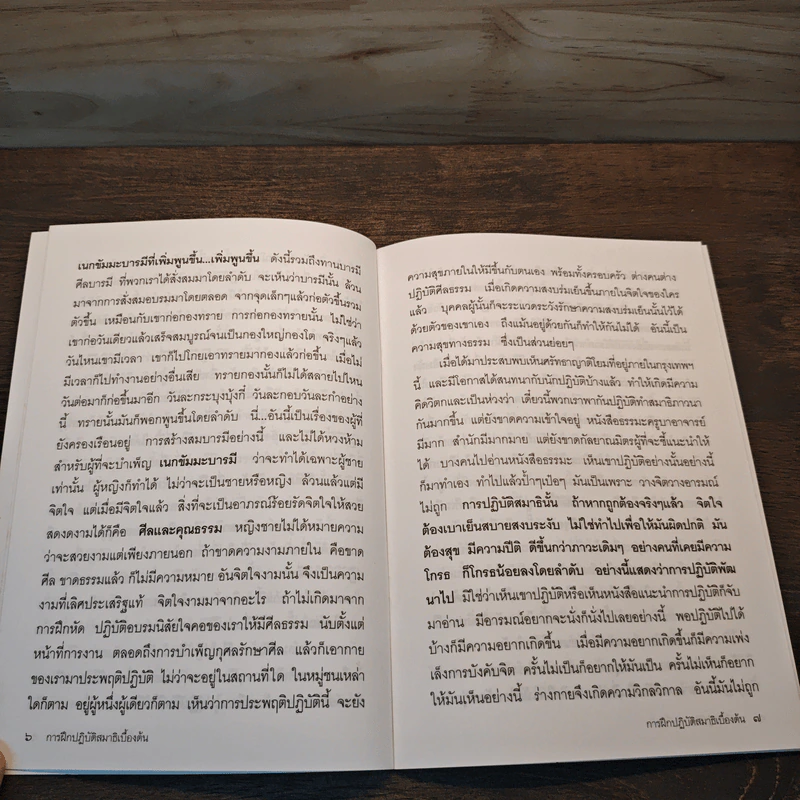 เนกขัมมะบารมีที่เพิ่มพูนขึ้น...เพิ่มพูนขึ้น ดังนี้รวมถึงทานบารมี
ศีลบารมี ที่พวกเราได้สั่งสมมาโดยลำดับ จะเห็นว่าบารมีนั้น ล้วน
มาจากการสั่งสมอบรมมาโดยตลอด จากจุดเล็กๆแล้วก่อตัวขึ้นรวม
ตัวขึ้น เหมือนกับเขาก่อกองทราย การก่อกองทรายนั้น ไม่ใช่ว่า
เขาก่อวันเดียวแล้วเสร็จสมบูรณ์จนเป็นกองใหญ่กองโต จริงๆแล้ว
วันไหนเขามีเวลา เขาก็ไปโกยเอาทรายมากองแล้วก่อขึ้น เมื่อไม่
มีเวลาก็ไปทำงานอย่างอื่นเสีย ทรายกองนั้นก็ไม่ได้สลายไปไหน
วันต่อมาก็ก่อขึ้นมาอีก วันละกระบุงบุ้งกี๋ วันละกอบวันละกำอย่าง
นี้ ทรายนั้นมันก็พอกพูนขึ้นโดยลำดับ นี่...อันนี้เป็นเรื่องของผู้ที่
ยังครองเรือนอยู่ การสร้างสมบารมีอย่างนี้ และไม่ได้หวงห้าม
สำหรับผู้ที่จะบำเพ็ญ เนกขัมมะบารมี ว่าจะทำได้เฉพาะผู้ชาย
เท่านั้น ผู้หญิงก็ทำได้ ไม่ว่าจะเป็นชายหรือหญิง ล้วนแล้วแต่มี
จิตใจ แต่เมื่อมีจิตใจแล้ว สิ่งที่จะเป็นอาภรณ์ร้อยรัดจิตใจให้สวย
สดงดงามได้ก็คือ ศีลและคุณธรรม หญิงชายไม่ได้หมายความ
ว่าจะสวยงามแต่เพียงภายนอก ถ้าขาดความงามภายใน คือขาด
ศีล ขาดธรรมแล้ว ก็ไม่มีความหมาย อันจิตใจงามนั้น จึงเป็นความ
งามที่เลิศประเสริฐแท้ จิตใจงามมาจากอะไร ถ้าไม่เกิดมาจาก
การฝึกหัด ปฏิบัติอบรมนิสัยใจคอของเราให้มีศีลธรรม นับตั้งแต่
หน้าที่การงาน ตลอดถึงการบำเพ็ญกุศลรักษาศีล แล้วก็เอากาย
ของเรามาประพฤติปฏิบัติ ไม่ว่าจะอยู่ในสถานที่ใด ในหมู่ชนเหล่า
ใดก็ตาม อยู่ผู้หนึ่งผู้เดียวก็ตาม เห็นว่าการประพฤติปฏิบัตินี้ จะยัง
๖ การฝึกปฏิบัติสมาธิเบื้องต้น
ความสุขภายในให้มีขึ้นกับตนเอง พร้อมทั้งครอบครัว ต่างคนต่าง
ปฏิบัติศีลธรรม เมื่อเกิดความสงบร่มเย็นขึ้นภายในจิตใจของใคร
แล้ว บุคคลผู้นั้นก็จะระแวดระวังรักษาความสงบร่มเย็นนั้นไว้ได้
ด้วยตัวของเขาเอง ถึงแม้นอยู่ด้วยกันก็ทำให้กันไม่ได้ อันนี้เป็น
ความสุขทางธรรม ซึ่งเป็นส่วนย่อยๆ
เมื่อได้มาประสบพบเห็นศรัทธาญาติโยมที่อยู่ภายในกรุงเทพฯ
นี้ และมีโอกาสได้สนทนากับนักปฏิบัติบ้างแล้ว ทำให้เกิดมีความ
คิดวิตกและเป็นห่วงว่า เดี๋ยวนี้พวกเราพากันปฏิบัติทำสมาธิภาวนา
กันมากขึ้น แต่ยังขาดความเข้าใจอยู่ หนังสือธรรมะครูบาอาจารย์
มีมาก สำนักมีมากมาย แต่ยังขาดกัลยาณมิตรผู้ที่จะชี้แนะนำให้
ได้ บางคนไปอ่านหนังสือธรรมะ เห็นเขาปฏิบัติอย่างนั้นอย่างนี้
ก็มาทำเอง ทำไปแล้วป้ำๆเป๋อๆ มันเป็นเพราะ วางจิตวางอารมณ์
ไม่ถูก การปฏิบัติสมาธินั้น ถ้าหากถูกต้องจริงๆแล้ว จิตใจ
ต้องเบาเย็นสบายสงบระงับ ไม่ใช่ทำไปเพื่อให้มันผิดปกติ มัน
ต้องสุข มีความปีติ ดีขึ้นกว่าภาวะเดิมๆ อย่างคนที่เคยมีความ
โกรธ ก็โกรธน้อยลงโดยลำดับ อย่างนี้แสดงว่าการปฏิบัติพัฒ
นาไป มิใช่ว่าเห็นเขาปฏิบัติหรือเห็นหนังสือแนะนำการปฏิบัติก็จับ
มาอ่าน มีอารมณ์อยากจะนั่งก็นั่งไปเลยอย่างนี้ พอปฏิบัติไปได้
บ้างก็มีความอยากเกิดขึ้น เมื่อมีความอยากเกิดขึ้นก็มีความเพ่ง
เล็งการบังคับจิต ครั้นไม่เป็นก็อยากให้มันเป็น ครั้นไม่เห็นก็อยาก
ให้มันเห็นอย่างนี้ ร่างกายจึงเกิดความวิกลวิกาล อันนี้มันไม่ถูก
การฝึกปฏิบัติสมาธิเบื้องต้น ๗